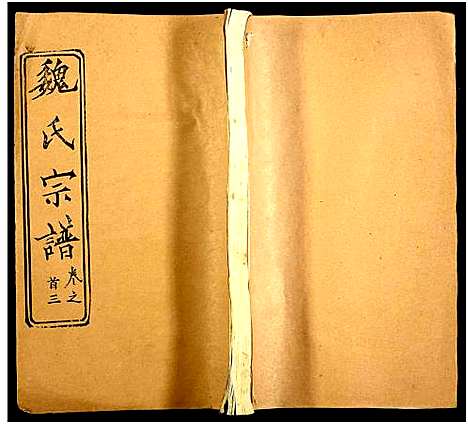 魏氏宗譜
卷之
首三